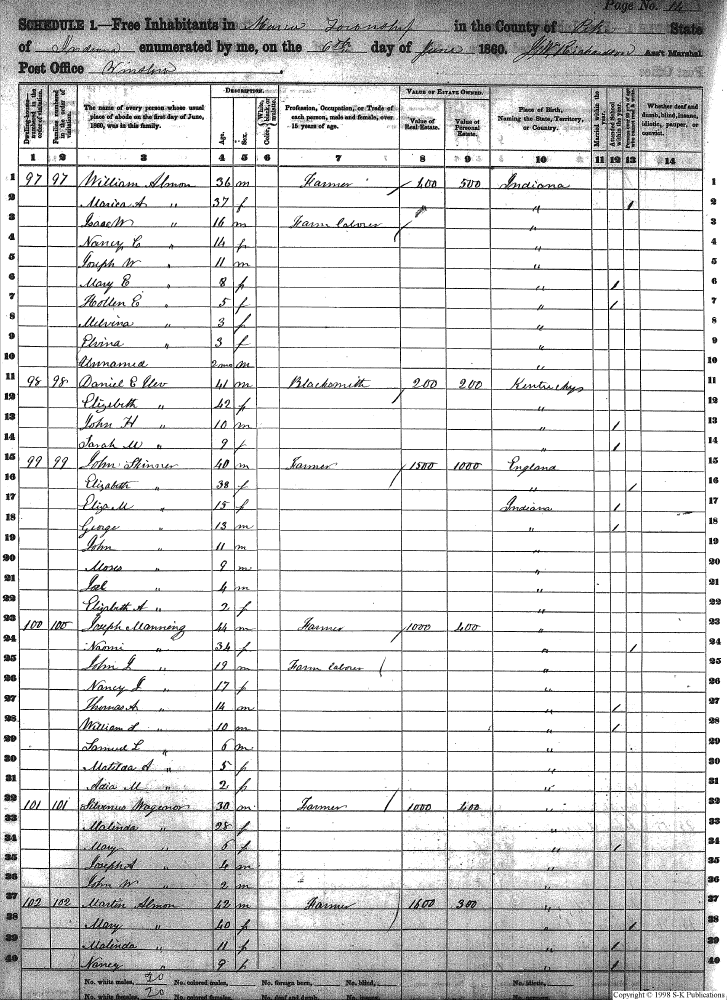 Page No. 14
SCHEDULE 1.—Free Inhabitants in Township in the County of Pike State
of Indiana enumerated by me, on the 6th day of June 1860. Ass't Marshal.
Post Office Winslow
Dwelling-houses numbered in the order of visitation.
Families numbered in the order of visitation.
The name of every person whose usual place of abode on the first day of June, 1860, was in this family.
DESCRIPTION.
Age.
Sex.
Color, White, black, or mulatto.
Profession, Occupation, or Trade of each person, male and female, over 15 years of age.
VALUE OF ESTATE OWNED.
Value of Real Estate.
Value of Personal Estate.
Place of Birth, Naming the State, Territory, or Country.
Married within the year.
Attended School within the year.
Persons over 20 years of age who cannot read & write.
Whether deaf and dumb, blind, insane, idiotic, pauper, or convict.
1 2 3 4 5 6 7 8 9 10 11 12 13 14
1 97 97 William Almon 36 m Farmer 500 Indiana 1
2 " 37 f " / 2
3 Isaac W " 16 m Farm laborer " 3
4 Nancy C " 14 f " 4
5 Joseph W " 11 m " 5
6 Mary E " 8 f " / 6
7 E " 5 f " / 7
8 Melvina " 3 f " 8
9 Elvina " 3 f " 9
10 Unnamed 2 mo m " 10
11 98 98 Daniel E 41 m Blacksmith 200 200 Kentucky 11
12 Elizebeth " 42 f " 12
13 John H " 10 m " / 13
14 Sarah M " 9 f " / 14
15 99 99 John Skinner 40 m Farmer 1500 1000 England 15
16 Elizabeth " 38 f " / 16
17 Eliza M " 15 f Indiana / 17
18 George " 13 m " / 18
19 John " 11 m " 19
20 Moses " 9 m " 20
21 Joel " 4 m " 21
22 Elizabeth A " 2 f " 22
23 100 100 Joseph Manning 44 m Farmer 1000 400 " 23
24 Naomi " 34 f " / 24
25 John " 19 m Farm laborer " 25
26 Nancy " 17 f " 26
27 Thomas A " 14 m " / 27
28 William " 10 m " / 28
29 Samuel L " 6 m " 29
30 Matilda A " 5 f " 30
31 M " 2 f " 31
32 101 101 Silvenus Wagenor 30 m Farmer 1000 400 " 32
33 Malinda " 28 f " 33
34 Mary " 6 f " / 34
35 Joseph A " 4 m " 35
36 John W " 2 m " 36
37 102 102 Martin Almon 42 m Farmer 1600 300 " 37
38 Mary " 40 f " / 38
39 Malinda " 11 f " / 39
40 Nancy " 9 f " / 40
No. white males, 20 No. colored males, No. foreign born, No. blind, No. idiotic,
No. white females, 20 No. colored females, No. deaf and dumb, No. insane,
Copyright © 1998 S-K Publications